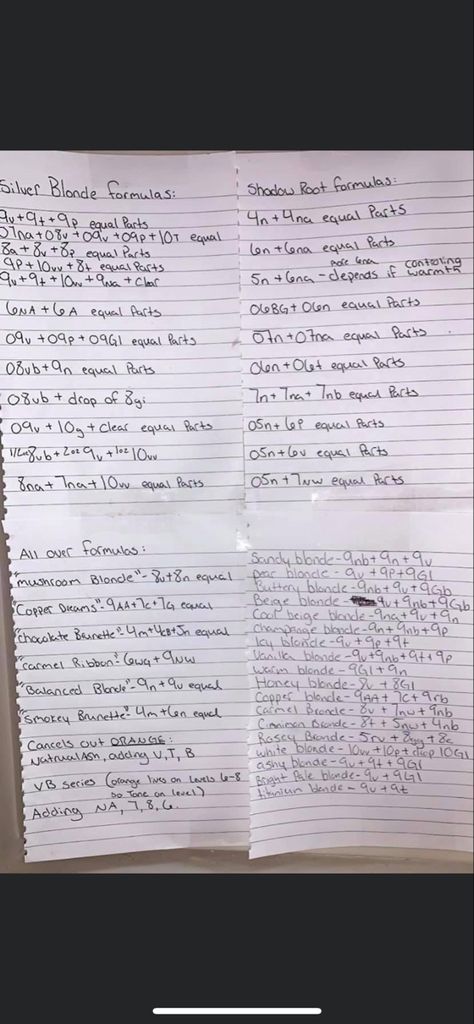 Silver Blonde formulas:
9v+9t+9p equal Parts
07na+08v+09v+09p+10T equal
8a+8v+8p equal Parts
9P+10vv+8t equal Parts
9v+9t+10vv+9na+clear
6NA+6A equal Parts
09v+09p+09GI equal Parts
08vb+9n equal Parts
08vb + drop of 8gi
09v+10g+clear equal Parts
8vb+2oz 9v+1oz 10vv
8na+7na+10vv equal Parts
Shadow Root formulas:
4n+4na equal Parts
6n+6na equal Parts
more 6na controling
5n+6na - depends if warmth
06BG+06n equal Parts
07n+07na equal Parts
06n+06t equal Parts
7n+7na+7nb equal Parts
05n+6p equal Parts
05n+6v equal Parts
05n+7NW equal Parts
All over formulas:
"mushroom Blonde"-8v+8n equal
"Copper Dreams"-9AA+7c+7G equal
"chocolate Brunette"-4m+4cB+5n equal
"carmel Ribbon"-6wg+9NW
"Balanced Blonde"-9n+9v equal
"Smokey Brunette"-4m+6n equal
Cancels out ORANGE:
adding V, T, B
VB series (orange lives on levels 6-8
so Tone on level)
Adding NA, 7, 8, 6.
Sandy blonde-9nb+9n+9v
blonde-9v+9p+9GI
Buttery blonde-9nb+9v+9Gb
Beige blonde-9v+9nb+9Gb
Cool beige blonde-9na+9v+9n
champange blonde-9n+9nb+9p
Icy blonde-9v+9p+9t
Vanilla blonde-9v+9nb+9t+9p
warm blonde-9GI+9n
Honey blonde-8v+8GI
Copper blonde-9AA+7c+9rb
Carmel Bronde-8v+7nw+9nb
Cinnamon Bronde-8t+5nw+4nb
Rosey Bronde-5rv+8gg+8c
white blonde-10vv+10p+drop 10GI
ashy blonde-9v+9t+9GI
Bright Pale blonde-9v+9GI
titanium blonde-9v+9t